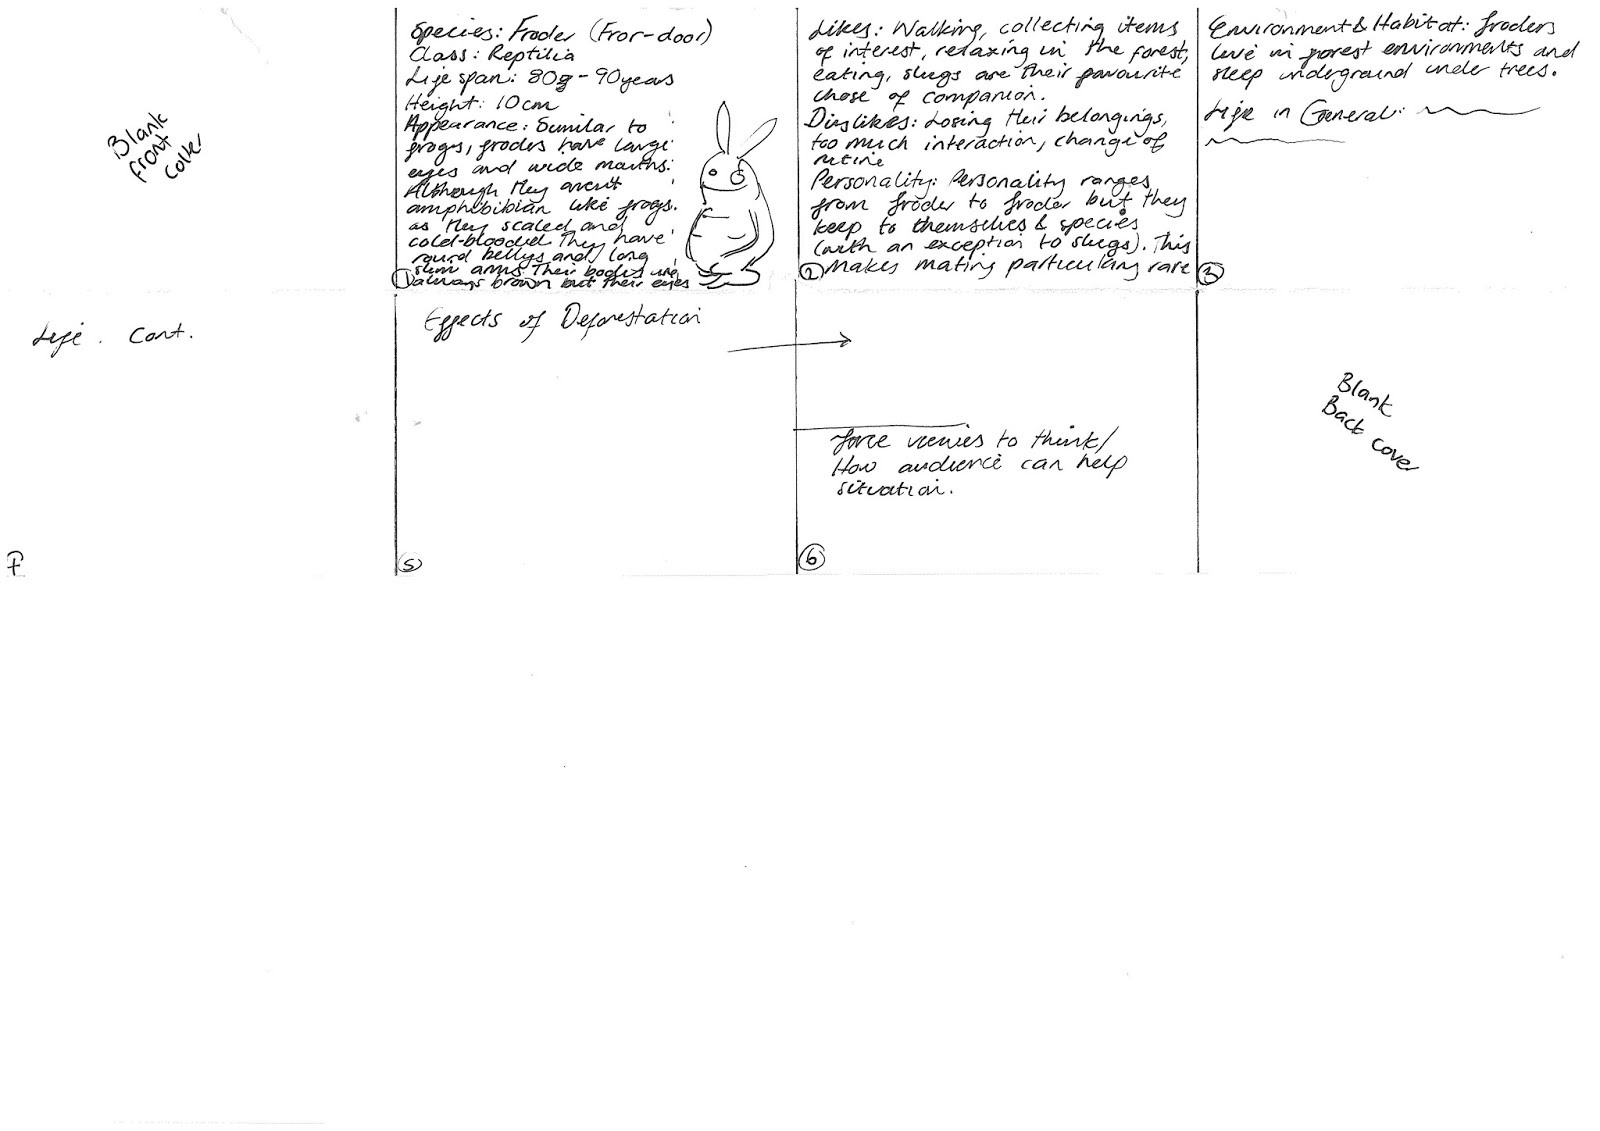 Blank
front
cover
Species: Froder (Fror-door)
Class: Reptilia
Life span: 80 - 90years
Height: 10cm
Appearance: Similar to
frogs, froders have large
eyes and wide mouths.
Although they arent
amphebibian like frogs.
as they scaled and
cold-blooded. They have
round bellys and long
slim arms. Their bodies are
always brown but their eyes
1
Likes: Walking, collecting items
of interest, relaxing in the forest,
eating, slugs are their favourite
chose of companion.
Dislikes: Losing their belongings,
too much interaction, change of
rutine
Personality: Personality ranges
from froder to froder but they
keep to themselves & species
(with an exception to slugs). This
2 Makes mating particulary rare
Environment & Habitat: froders
live in forest environments and
sleep underground under trees.
Life in General:
3
Life. Cont.
Effects of Deforestation
5
force viewies to think/
How audience can help
situation.
6
Blank
Back cover